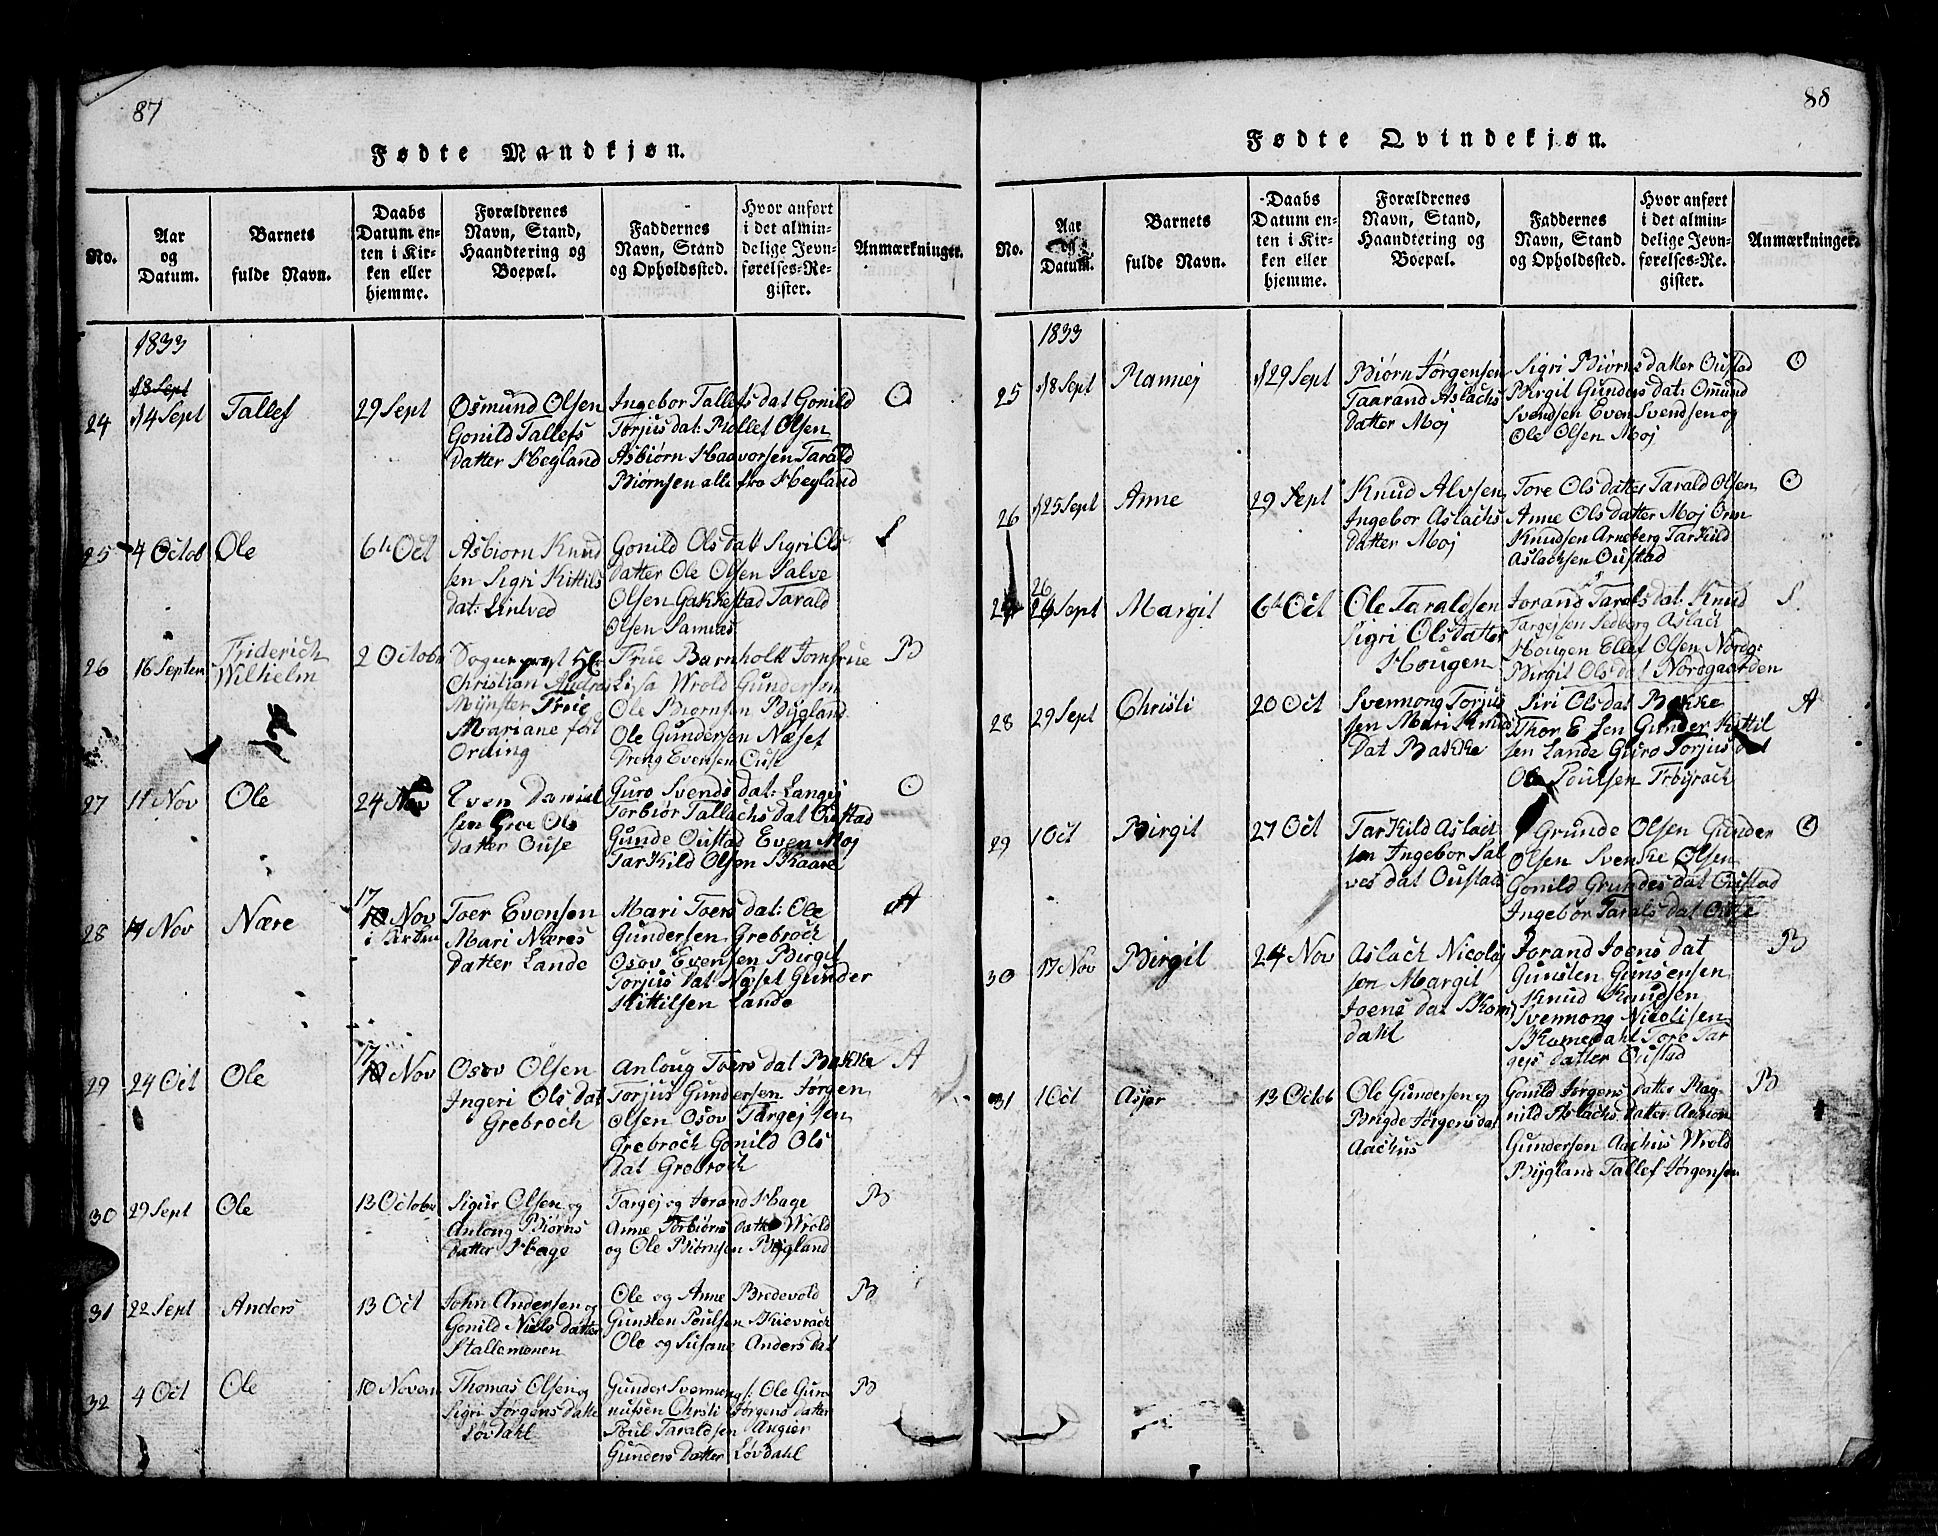 87
Fødte Mandkjøn.
No.
Aar
og
Datum.
Barnets
fulde Navn.
Daabs
Datum en-
ten i Kir-
ken eller
hjemme.
Forældrenes
Navn, Stand,
Haandtering og
Boepæl.
Faddernes
Navn, Stand
og Opholdssted.
Hvor anført
i det almin-
delige Jevn-
førelses-Re-
gister.
Anmærkninger.
1833
18 Sept
24
14 Sept
Tallef
29 Sept
Osmund Olsen
Gonild Tallefs
datter Hegland
Ingebor Tallefs dat Gonild
Torjus dat: Tallef Olsen
Asbiørn Haavorsen Tarald
Biørnsen alle fra Hegland
O
25
4 Octob
Ole
6te Oct
Asbiorn Knud
sen Sigri Kittils
dat: Lintved
Gonild Ols dat Sigri Ols
datter Ole Olsen Salve
Olsen Gakkestad Tarald
Olsen Samnæs
S
26
16 Septem
Friderich
Wilhelm
2 Octobr
Sogneprest Hr
Christian Andreas
Mÿnster Frue
Mariane fød
Ording
Frue Barnholt Jomfrue
Lisa Wrold Gundersen
Ole Biørnsen Bygland
Ole Gundersen Næset
Dreng Evensen Ouse
B
27
11 Nov
Ole
24 Nov
Even Daniel
sen Groe Ols
datter Ouse
Guro Svends dat: Langej
Torbiør Tallachs dat Oustad
Gunde Oustad Even Moj
Tarkild Olsen Skaare
O
28
14 Nov
Nære
17
10 Nov
i Kirken
Toer Evensen
Mari Næres
datter Lande
Mari Toers dat: Ole
Gundersen Grebroch
Osov Evensen Birgit
Torjus dat Næset Gunder
Kittilsen Lande
A
29
24 Oct
Ole
17
10 Nov
Osov Olsen
Ingeri Ols dat
Grebroch
Anloug Toers dat Bakke
Torjus Gundersen Jørgen
Olsen Osov Targejsen
Grebroch Gonild Ols
dat Grebroch
A
30
29 Sept
Ole
13 Octobr
Sigur Olsen og
Anloug Biørns
datter Hage
Targej og Jorand Hage
Anne Torbiørns datter Wrold
og Ole Biørnsen Bygland
B
31
22 Sept
Anders
13 Oct
John Andersen og
Gonild Niels datter
Stallemonen
Ole og Anne Bredevold
Gunsten Poulsen Skievrach
Ole og Susane Anders dat
B
32
4 Oct
Ole
10 Novem
Thomas Olsen og
Sigri Jørgens datte
Løvdahl
Gunder Svennongs: Ole Gun
nufsen Chrsti Jørgens datter
Poul Taraldsen Angier
Gunders datter Løvdahl
B
88
Fødte Qvindekjøn.
No.
Aar
og
Datum.
Barnets
fulde Navn.
Daabs
Datum en-
ten i Kir-
ken eller
hjemme.
Forældrenes
Navn, Stand,
Haandtering og
Boepæl.
Faddernes
Navn, Stand
og Opholdssted.
Hvor anført
i det almin-
delige Jevn-
førelses-Re-
gister.
Anmærkninger.
1833
25
18 Sept
Mannej
29 Sept
Biørn Jørgensen
Taarand Aslachs
datter Moj
Sigri Biørns datter Oustad
Birgit Gunders dat: Omund
Svendsen Even Svendsen og
Ole Olsen Moj
O
26
25 Sept
Anne
29 Sept
Knud Alvsen
Ingebor Aslachs
datter Moj
Tore Ols datter Tarald Olsen
Anne Ols datter Moj Orm
Knudsen Arneberg Tarkild
Aslachsen Oustad
O
27
26
24 Sept
Margit
6te Oct
Ole Taraldsen
Sigri Ols datter
Hougen
Jorand Tarals dat: Knud
Targejsen Sedberg Aslach
Hougen Ellef Olsen Nordg:
Birgit Ols dat Nordgaarden
S.
28
29 Sept
Christi
20 Oct
Svennong Torjus
sen Mari Knud
Dat Bakke
Siri Ols dat Bakke
Thor E sen Gunder Kittil
sen Lande Guro Torjus dat
Ole Poulsen Frøyrach
A
29
1 Oct
Birgit
27 Oct
Tarkild Aslach
sen Ingebor Sal
ves dat Oustad
Grunde Olsen Gunder
Olsen Svenke Olsen
Gonild Grundes dat Oustad
Ingebor Tarals dat Ouse
O
30
17 Nov
Birgit
24 Nov
Aslach Nicolaj
sen Margit
Joens dat Skom
dahl
Jorand Joens dat
Gunsten Gunsensen
Knud Knudsen
Svennong Nicolisen
Skomedahl Tore Tar
gejs datter Oustad
B
31
1 Oct
Asjer
13 Octob
Ole Gundersen og
Brigde Jørgens dat
Aachus
Gonild Jørgens datter Rag
nild Aslachs datter Aanon
Gundersen Aachus Wrold
Bygland Tallef Jørgensen
B